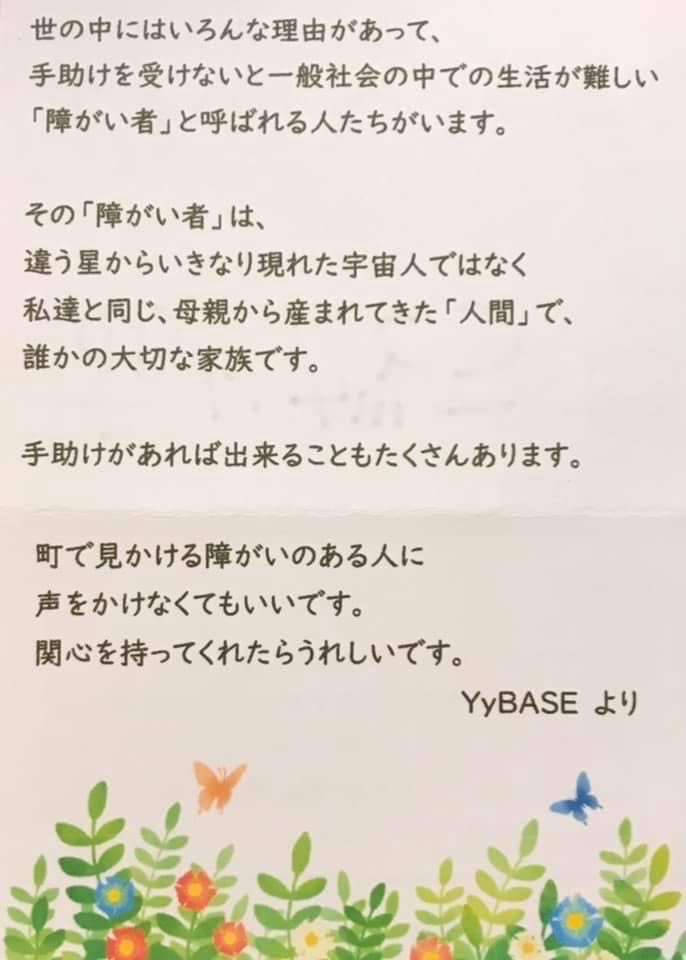 世の中にはいろんな理由があって、
手助けを受けないと一般社会の中での生活が難しい
「障がい者」と呼ばれる人たちがいます。
その「障がい者」は、
違う星からいきなり現れた宇宙人ではなく
私達と同じ、母親から産まれてきた「人間」で、
誰かの大切な家族です。
手助けがあれば出来ることもたくさんあります。
町で見かける障がいのある人に
声をかけなくてもいいです。
関心を持ってくれたらうれしいです。
YyBASE より